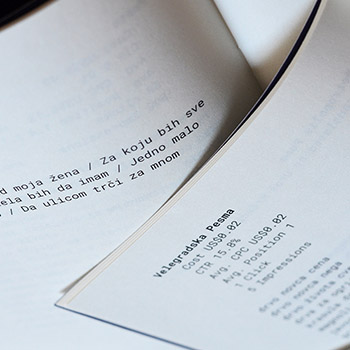 d moja žena / Za koju bih sve
ela bih da imam / Jedno malo
/ Da ulicom trči za mnom
Velegradska Pesma
Cost US$0.02
CTR 15.8%
Avg. CPC US$0.02
Avg. Position 1
1 Click
5 Impressions
drvo novca cena
drvo novca nega
drvo života